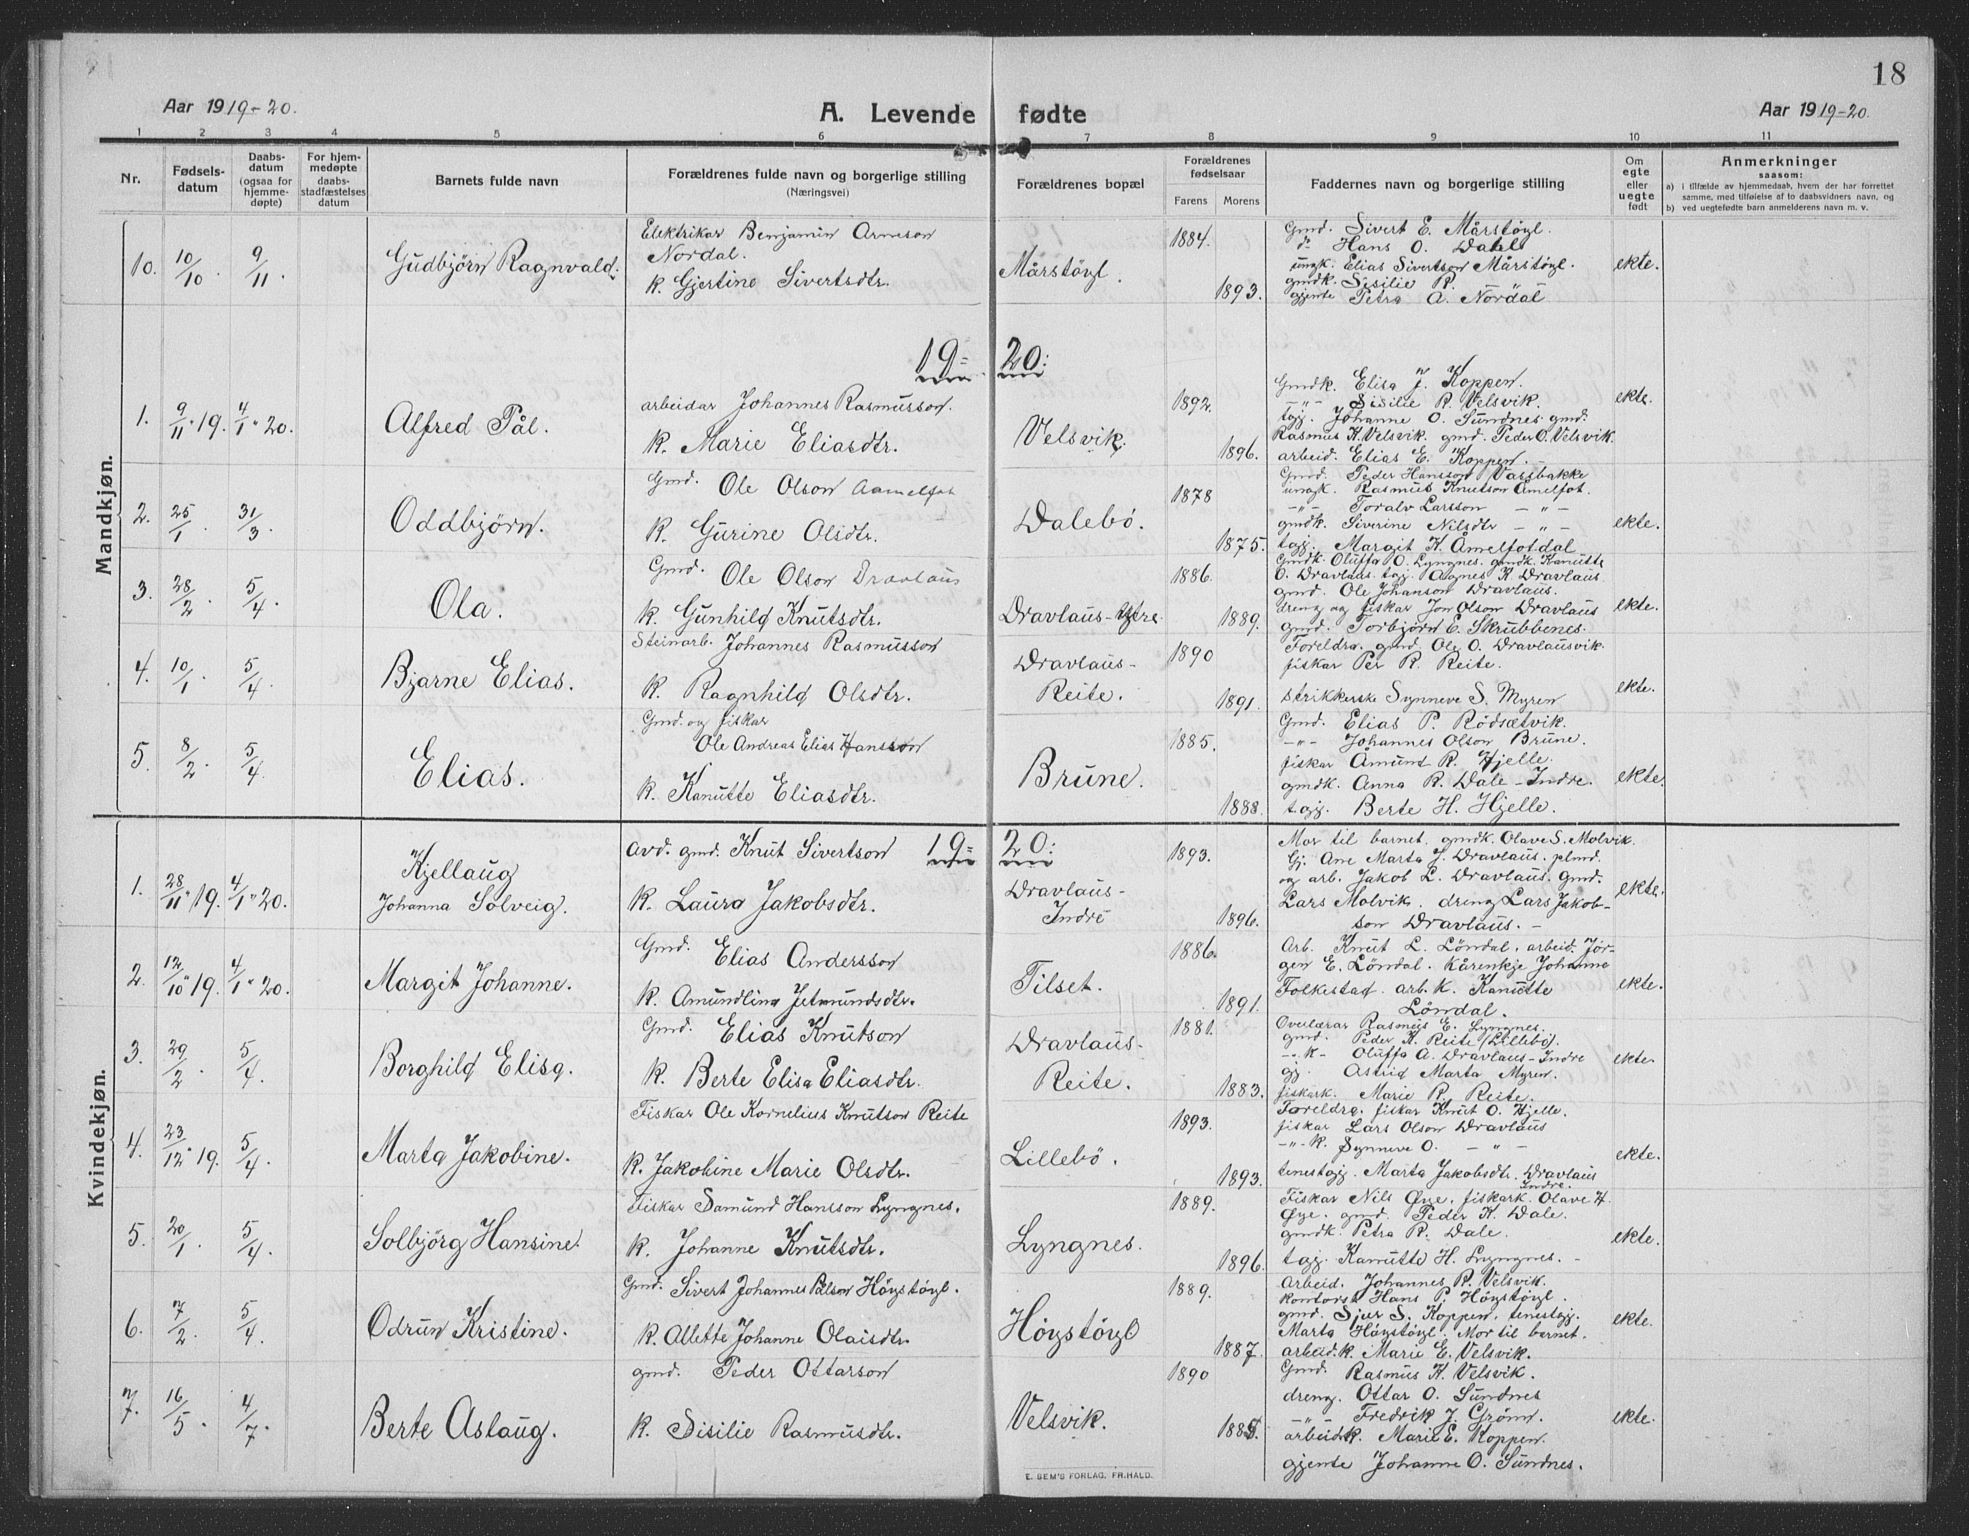 18
Aar 1919-20.
A. Levende fødte
Aar 1919-20.
1 2 3 4 5 6 7 8 9 10 11
Nr.
Fødsels-
datum
Daabs-
datum
(ogsaa for
hjemme-
døpte)
For hjem-
medøpte
daabs-
stadfæstelses
datum
Barnets fulde navn
Forældrenes fulde navn og borgerlige stilling
(Næringsvei)
Forældrenes bopæl
Forældrenes
fødselsaar
Farens Morens
Faddernes navn og borgerlige stilling
Om
egte
eller
uegte
født
Anmerkninger
saasom:
a) i tilfælde av hjemmedaab, hvem der har forrettet
samme, med tilføielse af to daabsvidners navn, og
b) ved uegtefødte barn anmelderens navn m. v.
Mandkjøn.
10. 10/10 9/11. Gudbjørn Ragnvald.
Elektrikar Benjamin Arneson
Nordal.
k. Gjertine Sivertsdtr.
Mårstöyl.
1884.
1893.
Gmd. Sivert E. Mårstöyl.
d: Hans O. Dahl
ungk. Elias Sivertson Mårstöyl.
gmdk. Sisilie R.
gjente Petra A. Nordal
ekte.
19= 20:
1. 9/11"19. 4/1"20. Alfred Pål.
arbeidar Johannes Rasmusson.
k. Marie Eliasdtr.
Velsvik.
1892.
1896.
Gmdk. Elisa J. Koppen.
-"- Sisilie R. Velsvik.
tgj. Johanne O. Sundnes gmd.
Rasmus K. Velsvik. gmd. Peder O. Velsvik.
arbeid. Elias E. Koppen.
ekte.
2. 25/1. 31/3. Oddbjörn.
Gmd. Ole Olson Aamelfot
k. Gurine Olsdtr.
Dalebö.
1878
1875.
Gmd. Peder Hansson Vassbakke
ungk. Rasmus Knutson Åmelfot.
-"- Toralv Larsson -"-
gmdk. Siverine Nilsdtr -"-
tgj. Margit K. Åmelfotdal
ekte.
3. 28/2. 5/4. Ola.
Gmd. Ole Olson Dravlaus
k. Gunhild Knutsdtr.
Dravlaus-Ytre
1886.
1889.
Gmdk. Oluffa O. Lyngnes. gmdk. Kanutte
O. Dravlaus. tgj. Agnes K. Dravlaus.
gmd. Ole Johanson Dravlaus.
dreng og fiskar Jon Olson Dravlaus
gmd. Torbjörn E. Skrubbenes.
ekte.
4. 10/1. 5/4. Bjarne Elias.
Steinarb. Johannes Rasmusson
k. Ragnhild Olsdtr.
Dravlaus-
Reite.
1890
1891.
Foreldra. gmd Ole O. Dravlausvik.
fiskar Per R. Reite.
strikkerske Synneve S. Myren
ekte.
5. 8/2. 5/4. Elias.
Gmd. og fiskar
Ole Andreas Elias Hansson
k. Kanutte Eliasdtr.
Brune.
1885.
1888.
Gmd. Elias P. Rödsætvik.
-"- Johannes Olson Brune.
fiskar Åmund R. Hjelle.
gmdk. Anna R. Dale-Indre.
tgj. Berte H. Hjelle.
ekte
Kvindekjøn.
1. 28/11"19. 4/1"20. Kjellaug
Johanna Solveig.
avd. gmd. Knut Sivertson 19= 20:
k. Laura Jakobsdtr.
Dravlaus-
Indre
1893.
1896.
Mor til barnet. gmdk. Olave S. Molvik
Gj. Ane Marta J. Dravlaus. plmd.
og arb. Jakob L. Dravlaus. gmd.
Lars Molvik. dreng Lars Jakob-
son Dravlaus.-
ekte.
2. 12/10"19. 4/1"20. Margit Johanne.
Gmd. Elias Andersson
k. Amundline Jetmundsdtr.
Tilset.
1886.
1891.
Arb. Knut L. Löndal. arbeid. Jör-
gen E. Löndal. Kårenkje Johanne
Folkestad. arb. k. Kanutte
Löndal.
ekte.
3. 29/2. 5/4. Borghild Elisa.
Gmd. Elias Knutson
k. Berte Elisa Eliasdtr.
Dravlaus-
Reite.
1881.
1883.
Overlærar Rasmus E. Lyngnes.
gmd. Peder K. Reite (Lillebö).
-"-k- Oluffa A. Dravlaus-Indre
gj. Astrid Marta Myren.
fiskark. Marie P. Reite.
ekte.
4. 23/12"19. 5/4. Marta Jakobine.
Fiskar Ole Kornelius Knutson Reite
k. Jakobine Marie Olsdtr.
Lillebö.
1893.
1893.
Foreldra. fiskar Knut O. Hjelle.
fiskar Lars Olson Dravlaus
-"-k. Synneve O. -"-
tenestgj. Marta Jakobsdtr. Dravlaus
Indre.
ekte.
5. 20/1. 5/4. Solbjörg Hansine.
Fiskar Samund Hansson Lyngnes.
k. Johanne Knutsdtr.
Lyngnes.
1889.
1896.
Fiskar Nils Øye. fiskark. Olave H.
Øye. gmd. Peder K. Dale.
gmdk. Petra R. Dale.
tgj. Kanutte H. Lyngnes.-
ekte.
6. 7/2. 5/4. Odrun Kristine.
Gmd. Sivert Johannes Pålson Höystöyl.
k. Allette Johanne Olaisdtr.
Höystöyl
1889.
1887.
Arbeid. Johannes R. Velsvik.
kontorst Hans P. Höystöyl.
gmd. Sjur S. Koppen. tenestgj.
Marta Höystöyl. Mor til barnet.
arbeid.k. Marie E. Velsvik.
ekte.
7. 16/5. 4/7. Berte Aslaug.
gmd. Peder Ottarson
k. Sisilie Rasmusdtr.
Velsvik.
1890
Gmd. Rasmus K. Velsvik.
dreng. Ottar O. Sundnes
-"- Fredrik J. Grönn.
arbeidk. Marie E. Koppen.
gjente Johanne O. Sundnes.
ekte.
E. SEM'S FORLAG, FR.HALD.